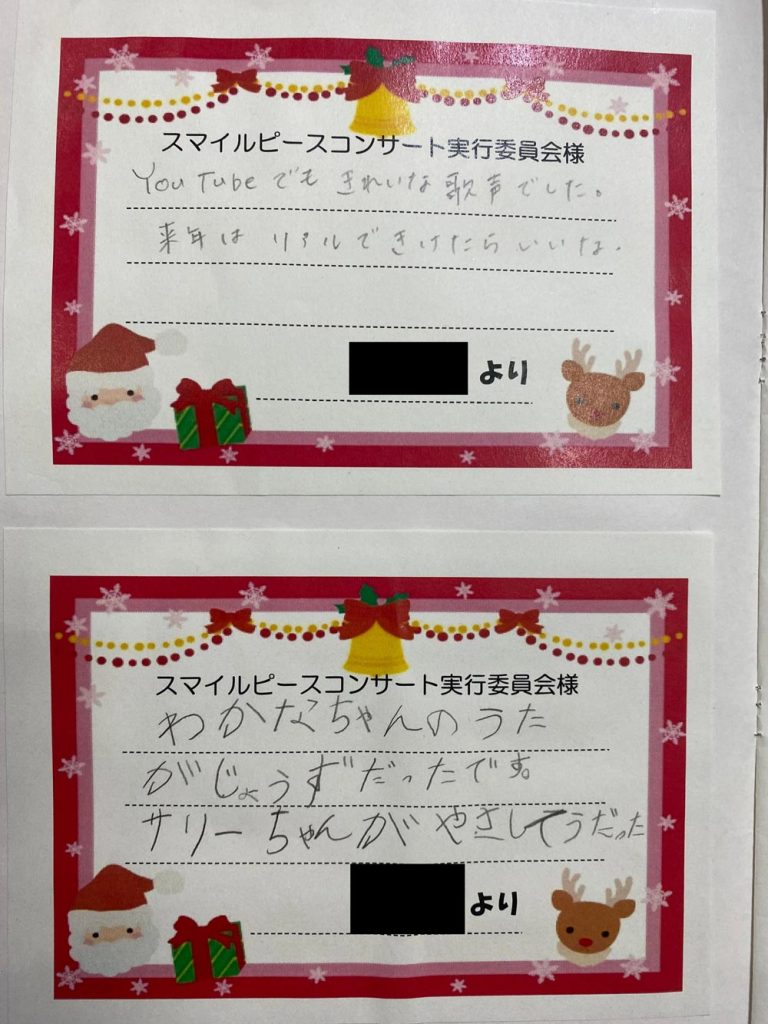 スマイルピースコンサート実行委員会様
YouTubeでも きれいな歌声でした。
来年は リアルできけたらいいな.
より
スマイルピースコンサート実行委員会様
わかなちゃんのうた
がじょうずだったです。
サリーちゃんがやさしてうだった
より